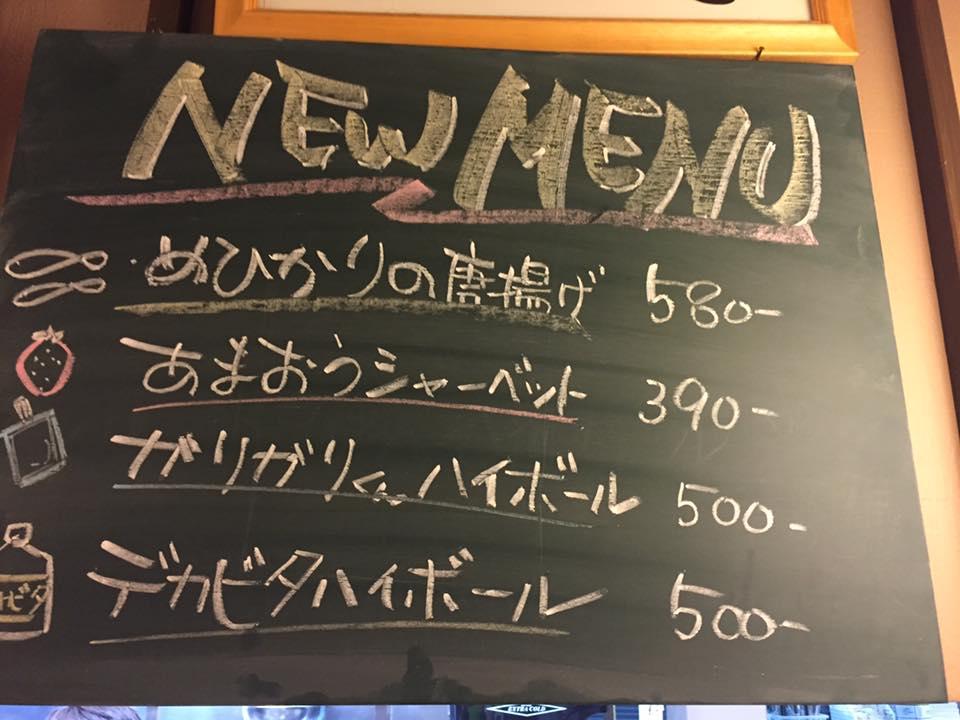 NEW MENU
・めひかりの唐揚げ 580-
あまおうシャーベット 390-
ガリガリくんハイボール 500-
デカビタハイボール 500-
ビタ
EXTRA COLD